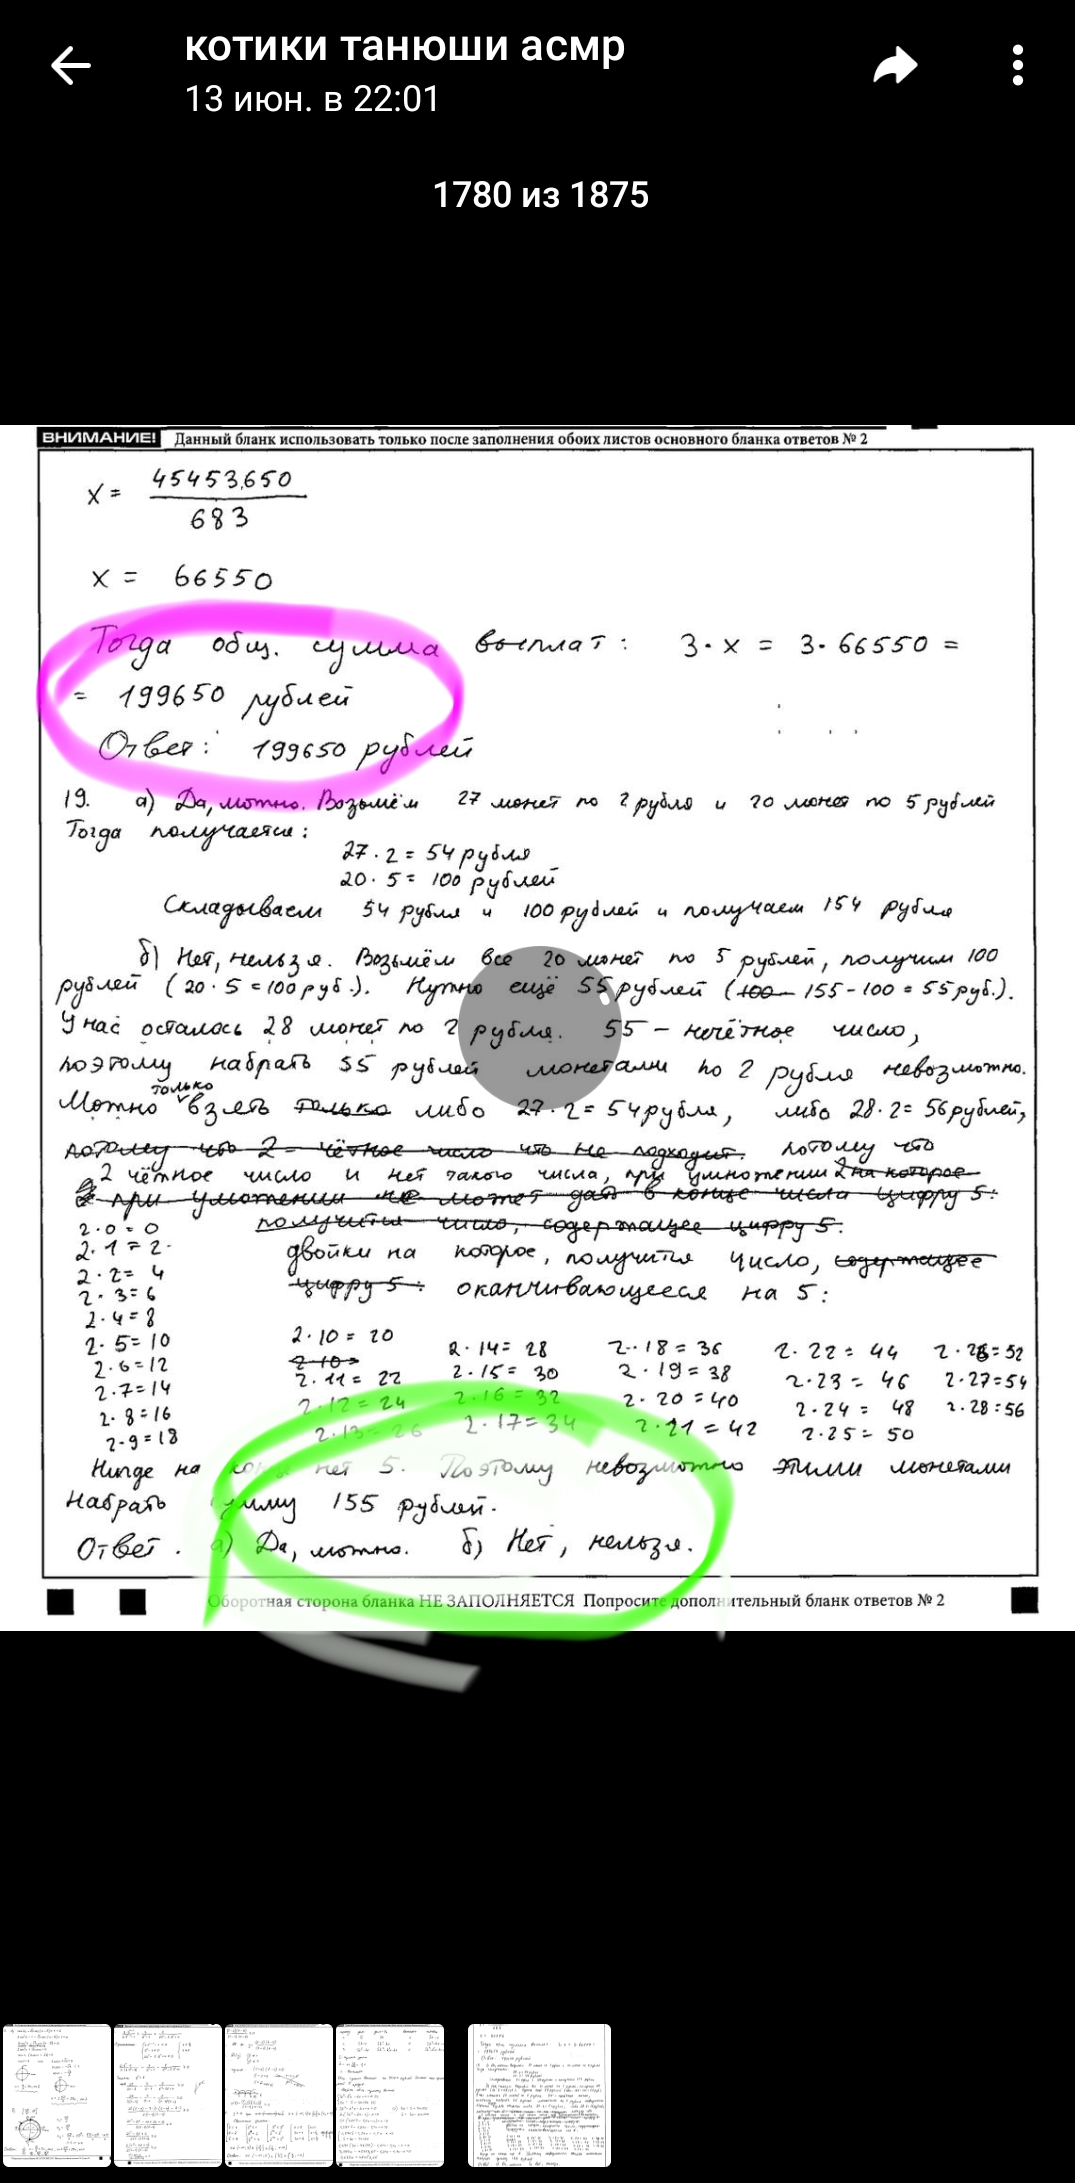 котики танюши асмр
13 июн. в 22:01
1780 из 1875
ВНИМАНИЕ! Данный бланк использовать только после заполнения обоих листов основного бланка ответов № 2
x = 45453,650
683
x = 66550
Тогда общ. сумма выплат: 3·x = 3·66550 =
= 199650 рублей
Ответ: 199650 рублей
19. а) Да, можно. Возьмём 27 монет по 2 рубля и 20 монет по 5 рублей
Тогда получается:
27·2 = 54 рубля
20·5 = 100 рублей
Складываем 54 рубля и 100 рублей и получаем 154 рубля
б) Нет, нельзя. Возьмём все 20 монет по 5 рублей, получим 100
рублей (20·5=100руб.). Нужно ещё 55 рублей (100 - 155-100=55руб.).
У нас осталось 28 монет по 2 рубля. 55 - нечётное число,
поэтому набрать 55 рублей монетами по 2 рубля невозможно.
только
Можно взять только либо 27·2=54рубля, либо 28·2=56рублей,
потому что 2 - чётное число что не подходит. потому что
2 чётное число и нет такого числа, при умножении на которое
при умножении не может дать в конце числа цифру 5:
2·0=0 получится число, содержащее цифру 5:
2·1=2 двойки на которое, получится число, содержащее
2·2=4
2·3=6 цифру 5: оканчивающееся на 5:
2·4=8
2·5=10 2·10=20 2·14=28 2·18=36 2·22=44 2·26=52
2·6=12 2·10=
2·7=14 2·11=22 2·15=30 2·19=38 2·23=46 2·27=54
2·8=16 2·12=24 2·16=32 2·20=40 2·24=48 2·28=56
2·9=18 2·13=26 2·17=34 2·21=42 2·25=50
Нигде на конце нет 5. Поэтому невозможно этими монетами
набрать сумму 155 рублей.
Ответ. а) Да, можно. б) Нет, нельзя.
Оборотная сторона бланка НЕ ЗАПОЛНЯЕТСЯ Попросите дополнительный бланк ответов № 2